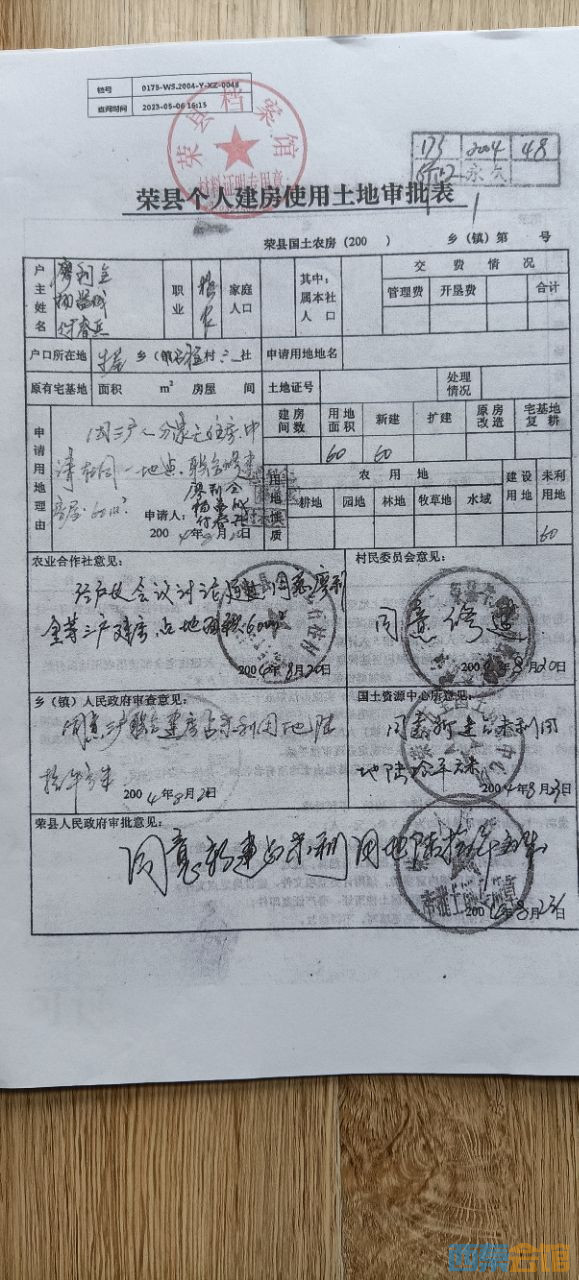 档号 0175-WS.2004-Y-XZ-0048
查阅时间 2023-05-06 16:15
荣县档案馆
材料证明专用章
173 2004 48
永久
荣县个人建房使用土地审批表
荣县国土农房(200 )乡(镇)第 号
户主姓名 廖利全
职业 农
家庭人口
其中:属本社人口
交费情况
管理费 开垦费 合计
户口所在地 乡(镇) 村 社 申请用地地名
原有宅基地 面积 m² 房屋 间 土地证号 处理情况
申请用地理由
因三户人分家无住房,申
请在同一地点,联合修建
房屋60m².
廖利全
申请人:
2004年8月20日
建房间数 用地面积 新建 扩建 原房改造 宅基地复耕
60 60
用地性质 农用地 建设用地 未利用地
耕地 园地 林地 牧草地 水域
60
农业合作社意见:
经户代会议讨论通过同意廖利
全等三户建房占地面积60m²
2004年8月20日
村民委员会意见:
同意修建.
2004年8月20日
乡(镇)人民政府审查意见:
同意三户联合建房占未利用地陆
拾平方米
2004年8月2 日
国土资源中心所意见:
同意新建占未利用
地陆拾平方米
2004年8月23日
荣县人民政府审批意见:
同意新建占未利用地陆拾平方米.
2004年8月23日